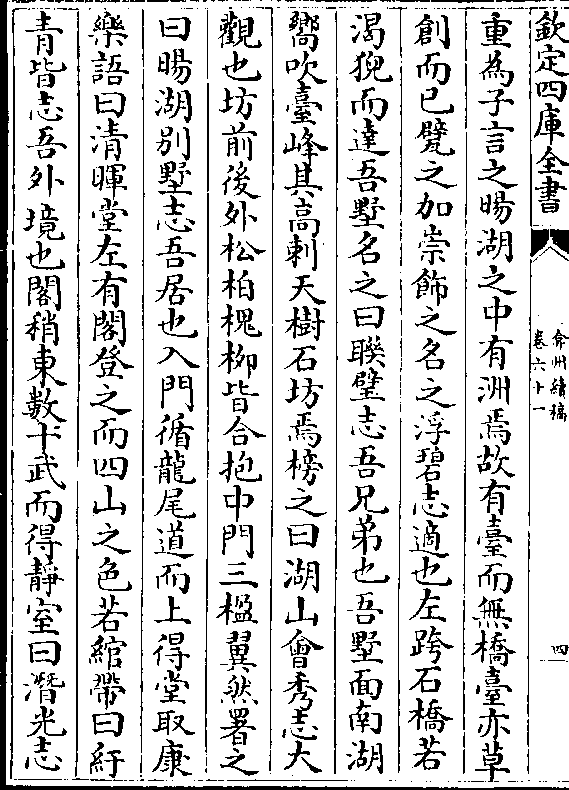 欽定四庫全書
弇州續稿
卷六十一
四
重為子言之暘湖之中有洲焉故有臺而無橋臺亦草
創而已甓之加崇飾之名之浮碧志適也左跨石橋若
渴猊而達吾墅名之曰聨璧志吾兄弟也吾墅面南湖
嚮吹臺峰其高刺天樹石坊焉榜之曰湖山會秀志大
觀也坊前後外松柏槐柳皆合抱中門三楹翼然署之
曰暘湖别墅志吾居也入門循龍尾道而上得堂取康
樂語曰清暉堂左有閣登之而四山之色若綰帶曰紆
青皆志吾外境也閣稍東數十武而得靜室曰潛光志